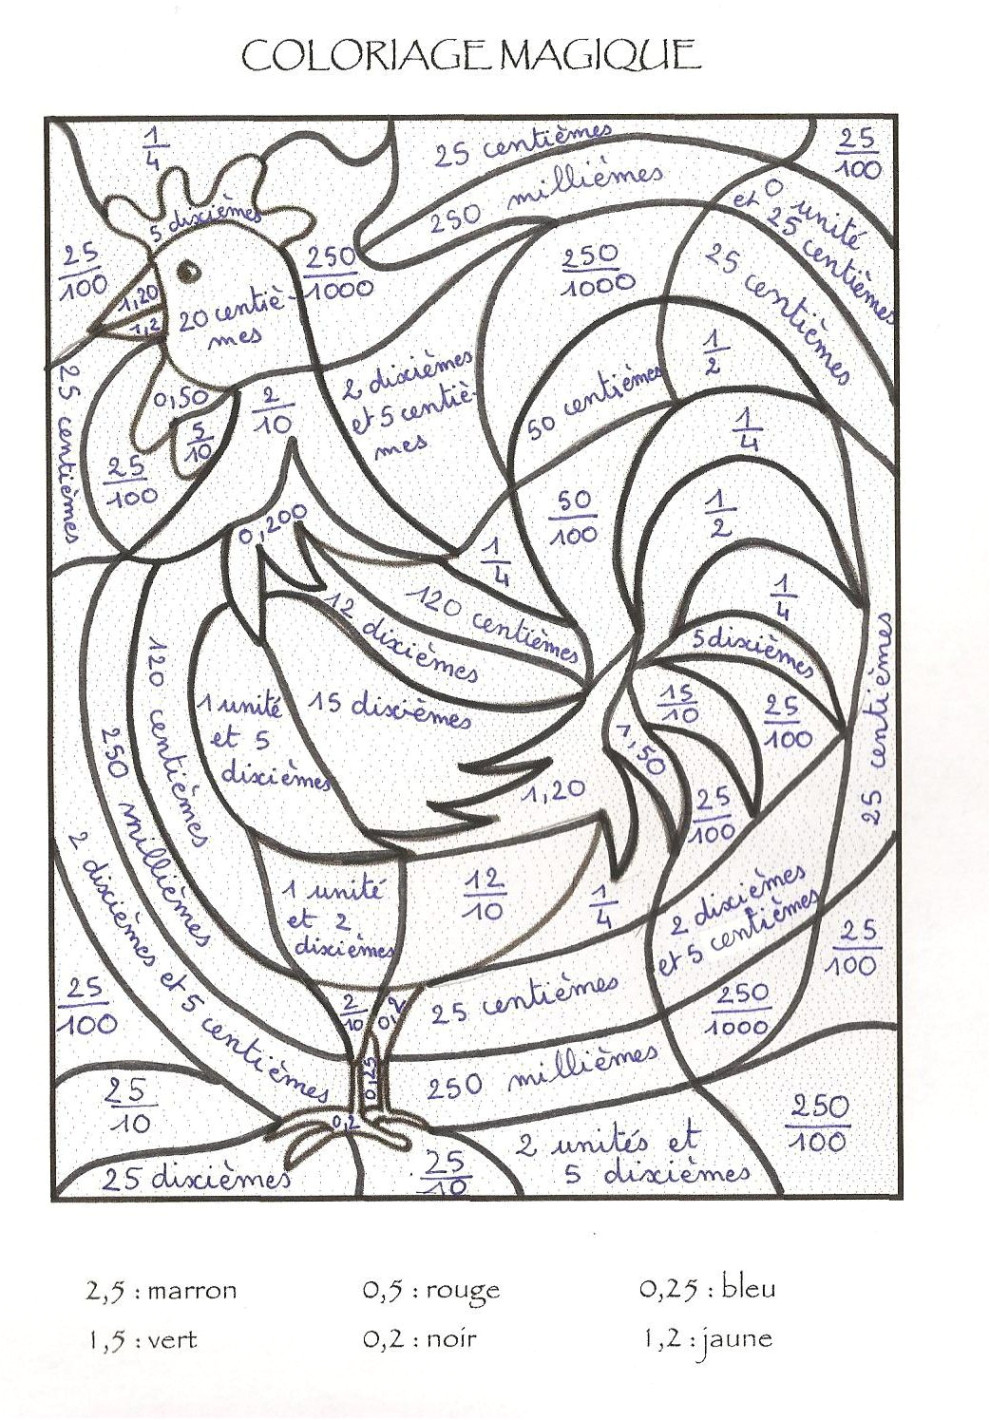 COLORIAGE MAGIQUE
1/4
25 centièmes
25/100
250 millièmes
et 0 unité
25 centièmes
5 dixièmes
25/100
250/1000
250/1000
25 centièmes
1,20
1,2
20 centiè-
mes
1/2
25 centièmes
0,50
2/10
2 dixièmes
et 5 centiè-
mes
50 centièmes
1/4
5/10
25/100
0,200
50/100
1/2
1/4
1/4
120 centièmes
12 dixièmes
5 dixièmes
120 centièmes
1 unité
et 5
dixièmes
15 dixièmes
15/10
25/100
25 centièmes
250 millièmes
1,50
1,20
25/100
2 dixièmes et 5 centièmes
1 unité
et 2
dixièmes
12/10
1/4
2 dixièmes
et 5 centièmes
25/100
25/100
2/10
0,2
25 centièmes
250/1000
0,25
250 millièmes
25/10
0,2
250/100
2 unités et
5 dixièmes
25 dixièmes
25/10
2,5 : marron
0,5 : rouge
0,25 : bleu
1,5 : vert
0,2 : noir
1,2 : jaune